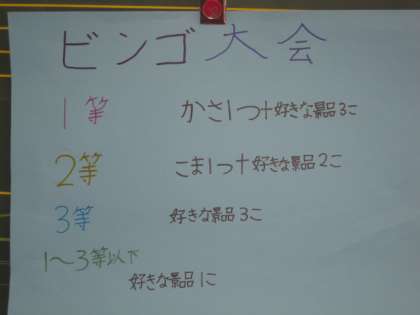 ビンゴ大会
1等 かさ1つ+好きな景品3こ
2等 こま1つ+好きな景品2こ
3等 好きな景品3こ
1〜3等以下
好きな景品1こ